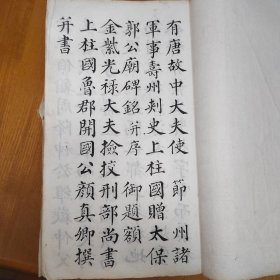 有唐故中大夫使 節州諸
軍事壽州刾史上柱國贈太保
郭公廟碑銘并序 御題額
金紫光禄大夫撿挍刑部尚書
上柱國魯郡開國公顔真卿撰
并書